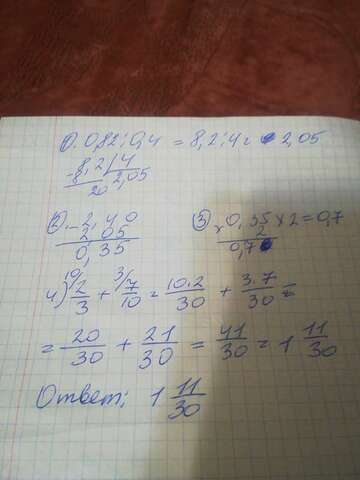 1). 0,82:0,4 = 8,2:4 = 2,05
-8,2 | 4
8 2,05
20
2) -2,40
2 05
0,35
3) 0,35 × 2 = 0,7
× 2
0,70
4) 10/ 2/3 + 3/ 7/10 = 10·2/30 + 3·7/30 =
= 20/30 + 21/30 = 41/30 = 1 11/30
Ответ: 1 11/30